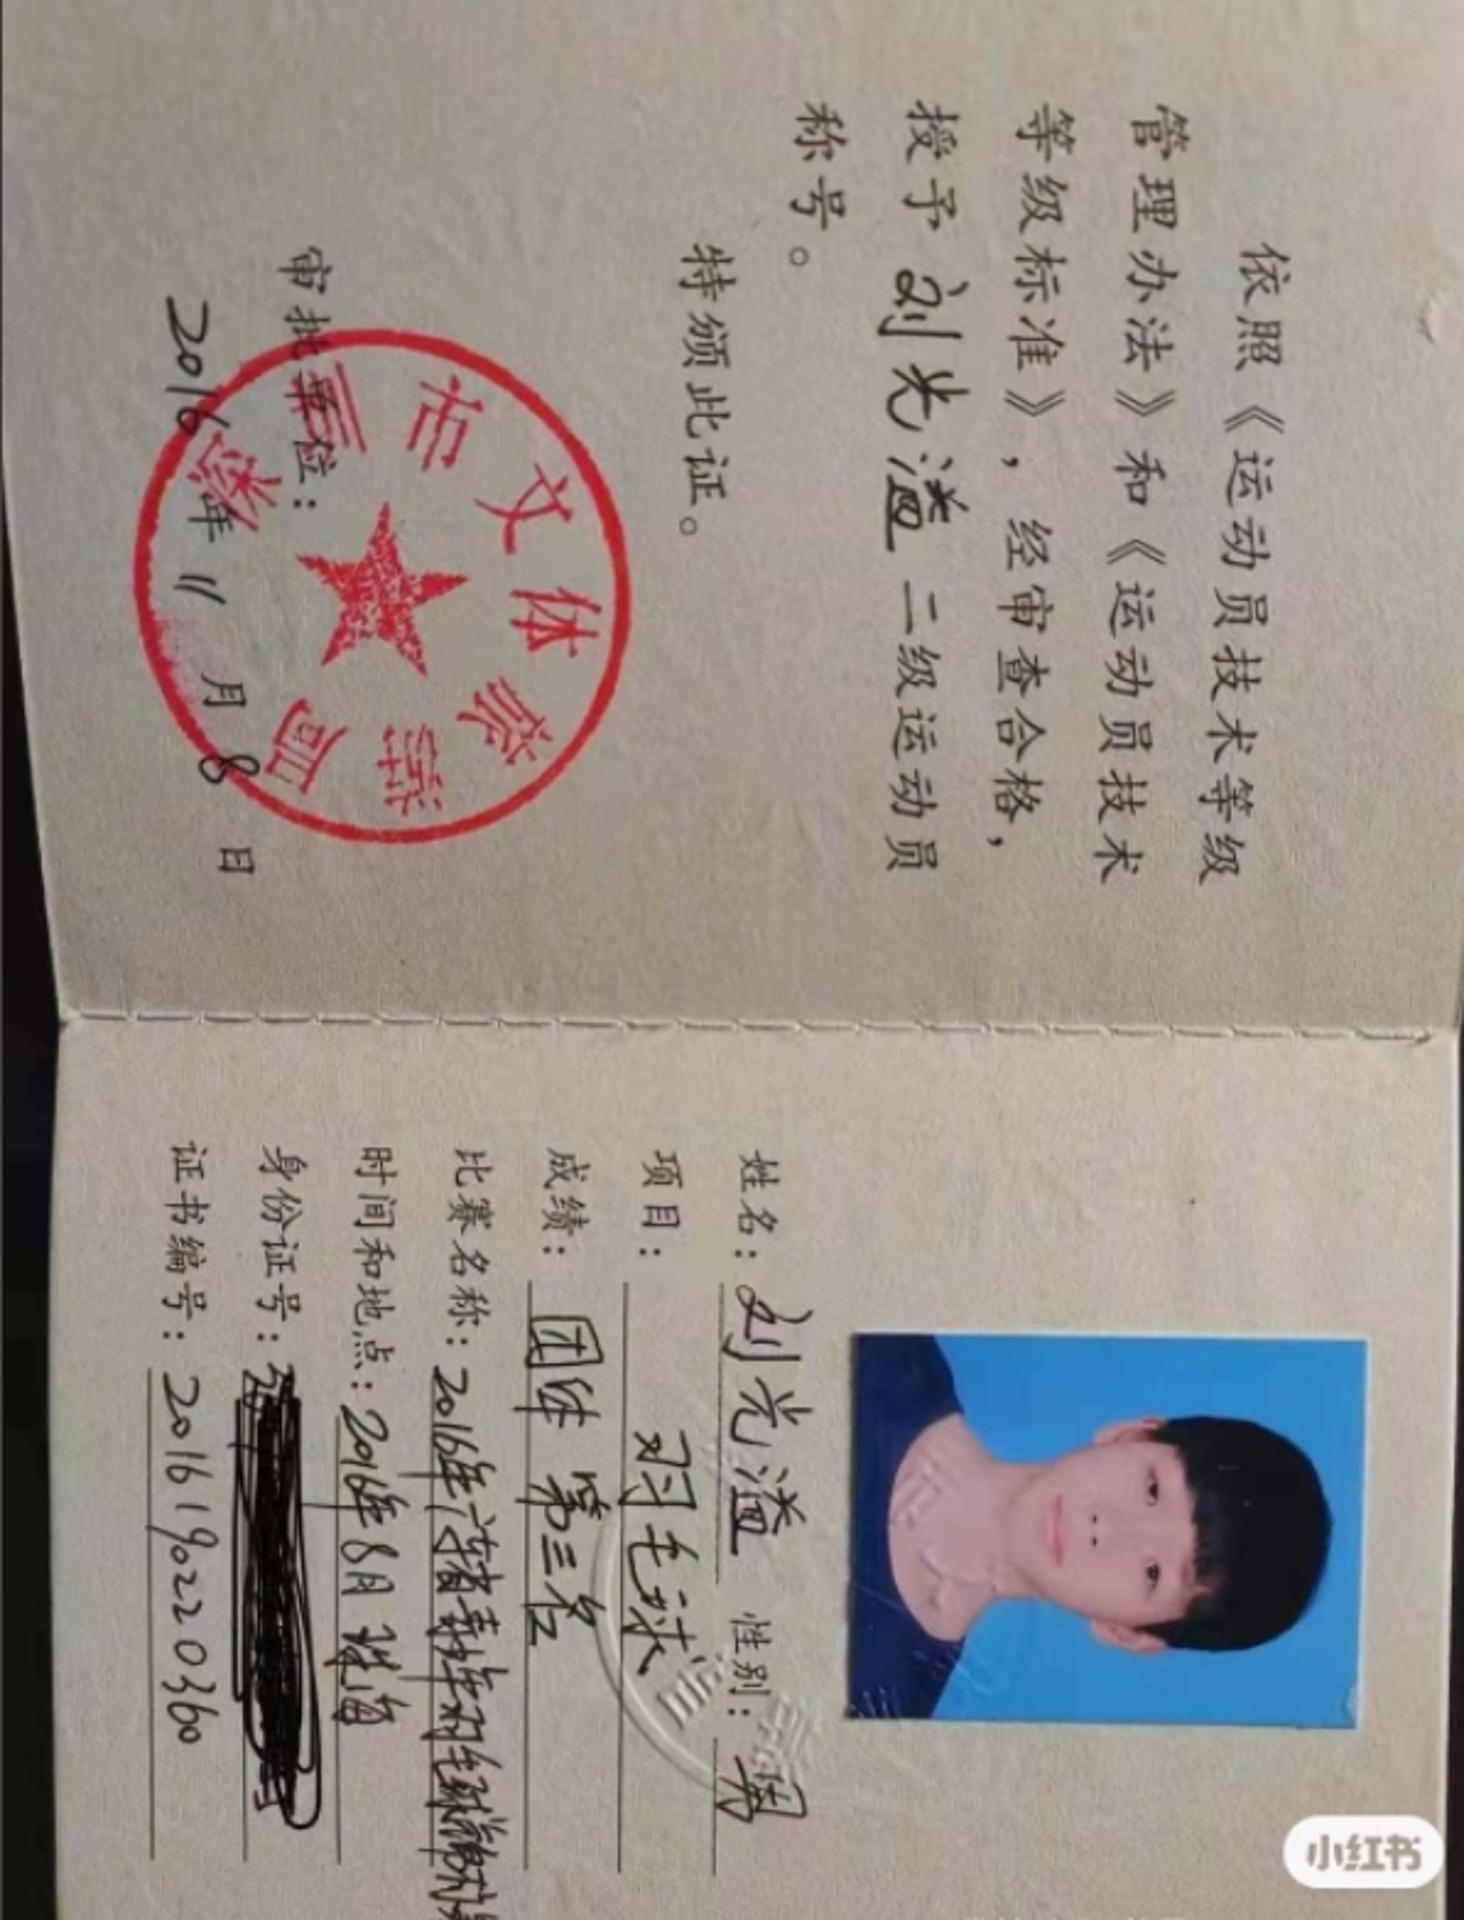 依照《运动员技术等级
管理办法》和《运动员技术
等级标准》，经审查合格，
授予 刘光溢 二级运动员
称号。
特颁此证。
审批单位：
市文体旅游局
2016年11月8日
姓名：刘光溢 性别：男
项目：羽毛球
成绩：团体 第三名
比赛名称：2016年广东省青少年羽毛球锦标赛
时间和地点：2016年8月 珠海
身份证号：
证书编号：2016190220360
小红书